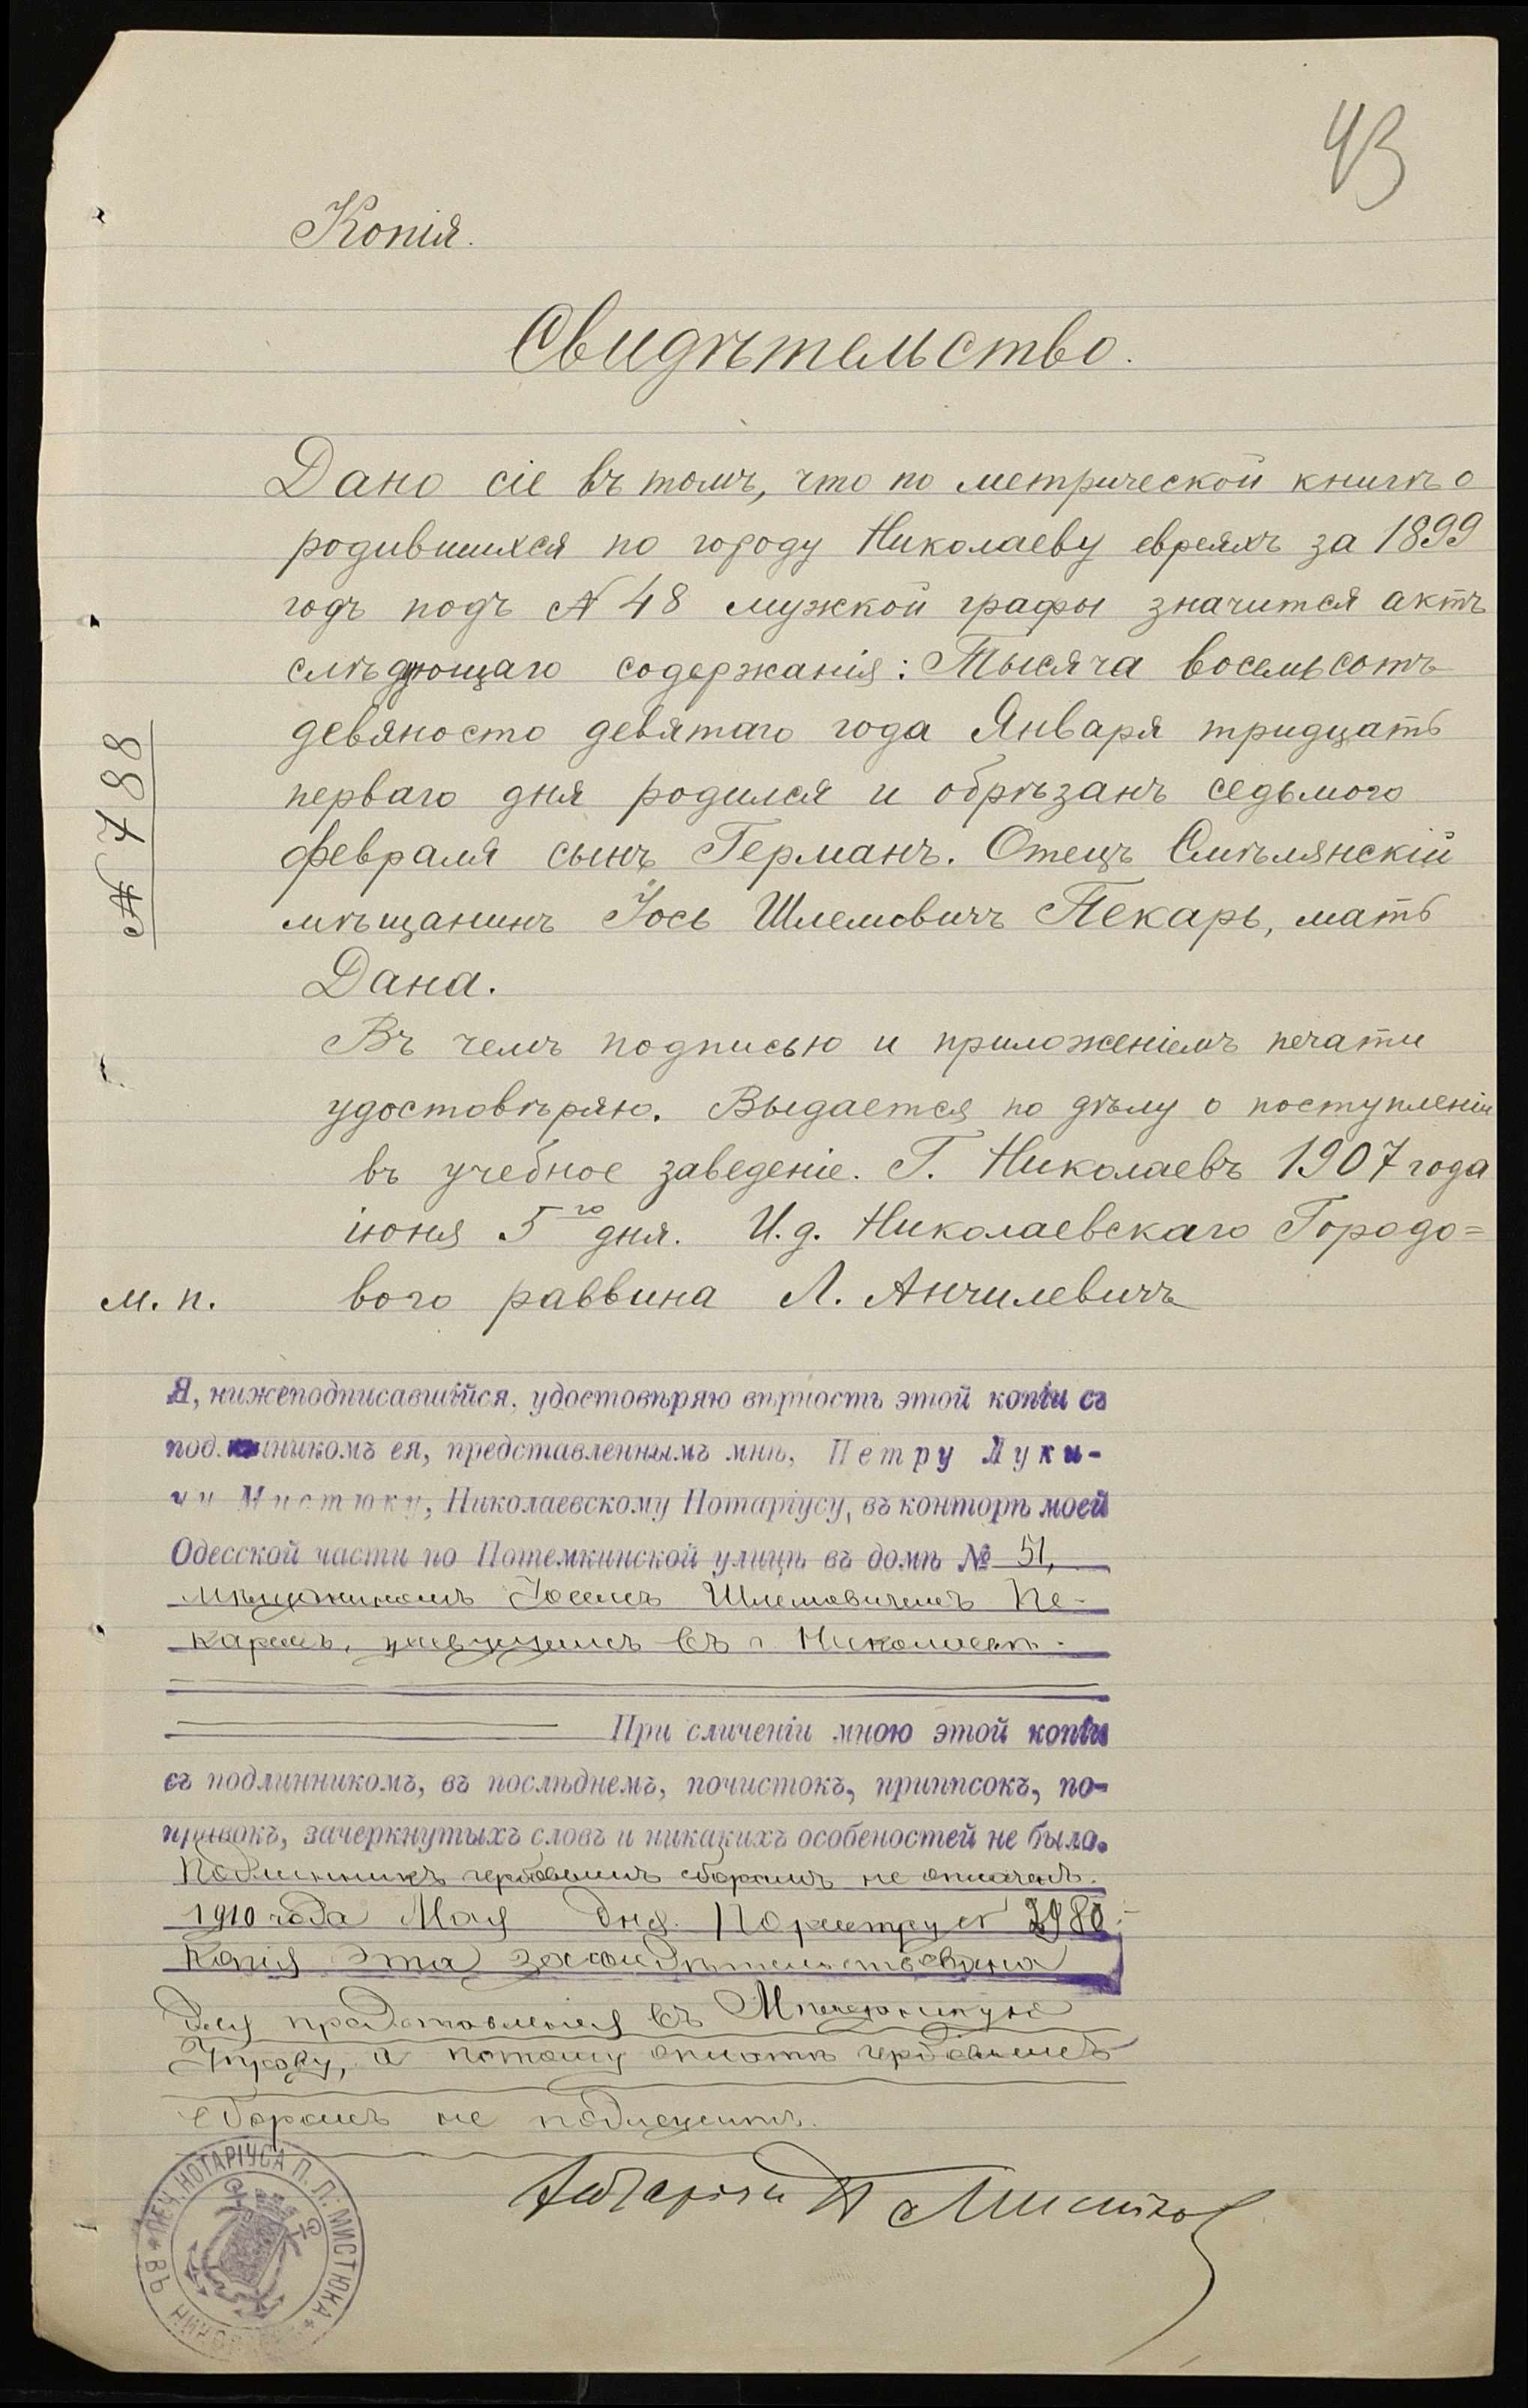 43
Копія.
Свидѣтельство.
Дано сіе въ томъ, что по метрической книгѣ о
родившихся по городу Николаеву евреяхъ за 1899
годъ подъ № 48 мужской графы значится актъ
слѣдующаго содержанія: Тысяча восемьсотъ
девяносто девятаго года Января тридцать
перваго дня родился и обрѣзанъ седьмого
февраля сынъ Германъ. Отецъ Смѣлянскій
мѣщанинъ Іось Шлемовичъ Пекарь, мать
Дана.
№ 788
Въ чемъ подписью и приложеніемъ печати
удостовѣряю. Выдается по дѣлу о поступленіи
въ учебное заведеніе. Г. Николаевъ 1907 года
іюня 5го дня. И.д. Николаевскаго Городо=
м.п. вого раввина Л. Анчилевичъ
Я, нижеподписавшійся, удостовѣряю вѣрность этой копіи съ
подлинникомъ ея, представленнымъ мнѣ, Петру Луки-
чу Мистюку, Николаевскому Нотаріусу, въ конторѣ моей
Одесской части по Потемкинской улицѣ въ домѣ № 51,
мѣщаниномъ Іосемъ Шлемовичемъ Пе-
каремъ, живущимъ въ г. Николаевѣ.
При сличеніи мною этой копіи
съ подлинникомъ, въ послѣднемъ, почистокъ, приписокъ, по-
правокъ, зачеркнутыхъ словъ и никакихъ особеностей не было.
Подлинникъ гербовымъ сборомъ не оплаченъ.
1910 года Мая дня. По реестру № 2980.
Копія эта засвидѣтельствована
для представленія въ Мѣщанскую
Управу, а потому оплатѣ гербовымъ
сборомъ не подлежитъ.
Нотаріусъ П Мистюкъ
ПЕЧ. НОТАРІУСА П. Л. МИСТЮКА * ВЪ